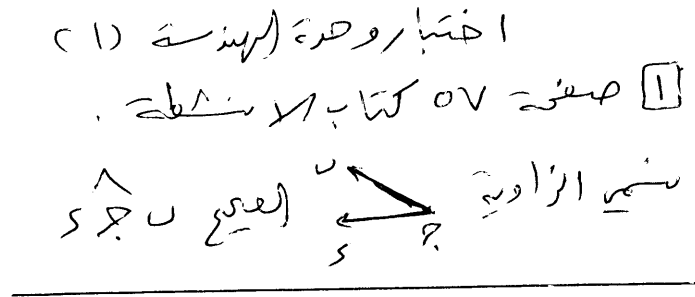 اختبار وحدة الهندسة (١)
١ صفحة ٥٧ كتاب الانشطة .
نسمي الزاوية ب ج ء الصحيح ب ج ء